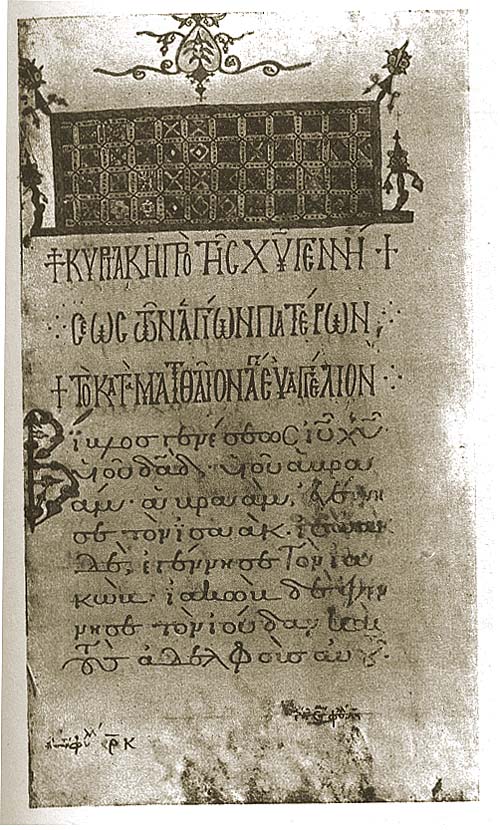 + ΚΥΡΙΑΚΗ ΠΡὸ ΤΗϹ ΧΥ ΓΕΝΝΉ +
ϹΕΩϹ ΤῶΝ ἉΓΊΩΝ ΠΑΤΈΡΩΝ
+ Τὸ ΚΑΤ ΜΑΤΘΑῖΟΝ ἍΓΙ ΕὐΑΓΓΈΛΙΟΝ
Βίβλος γενέσεως ἰυ χυ
υἱοῦ δαδ· υἱοῦ ἀβρα
άμ· ἀβραὰμ, ἐγέννη
σε τὸν ἰσαάκ· ἰσαὰκ
δὲ, ἐγέννησε Τὸν ἰα
κώβ· ἰακὼβ δὲ ἐγέν
νησε τὸν ἰούδαν, καὶ
τοὺς ἀδελφοὺς αὐτοῦ·